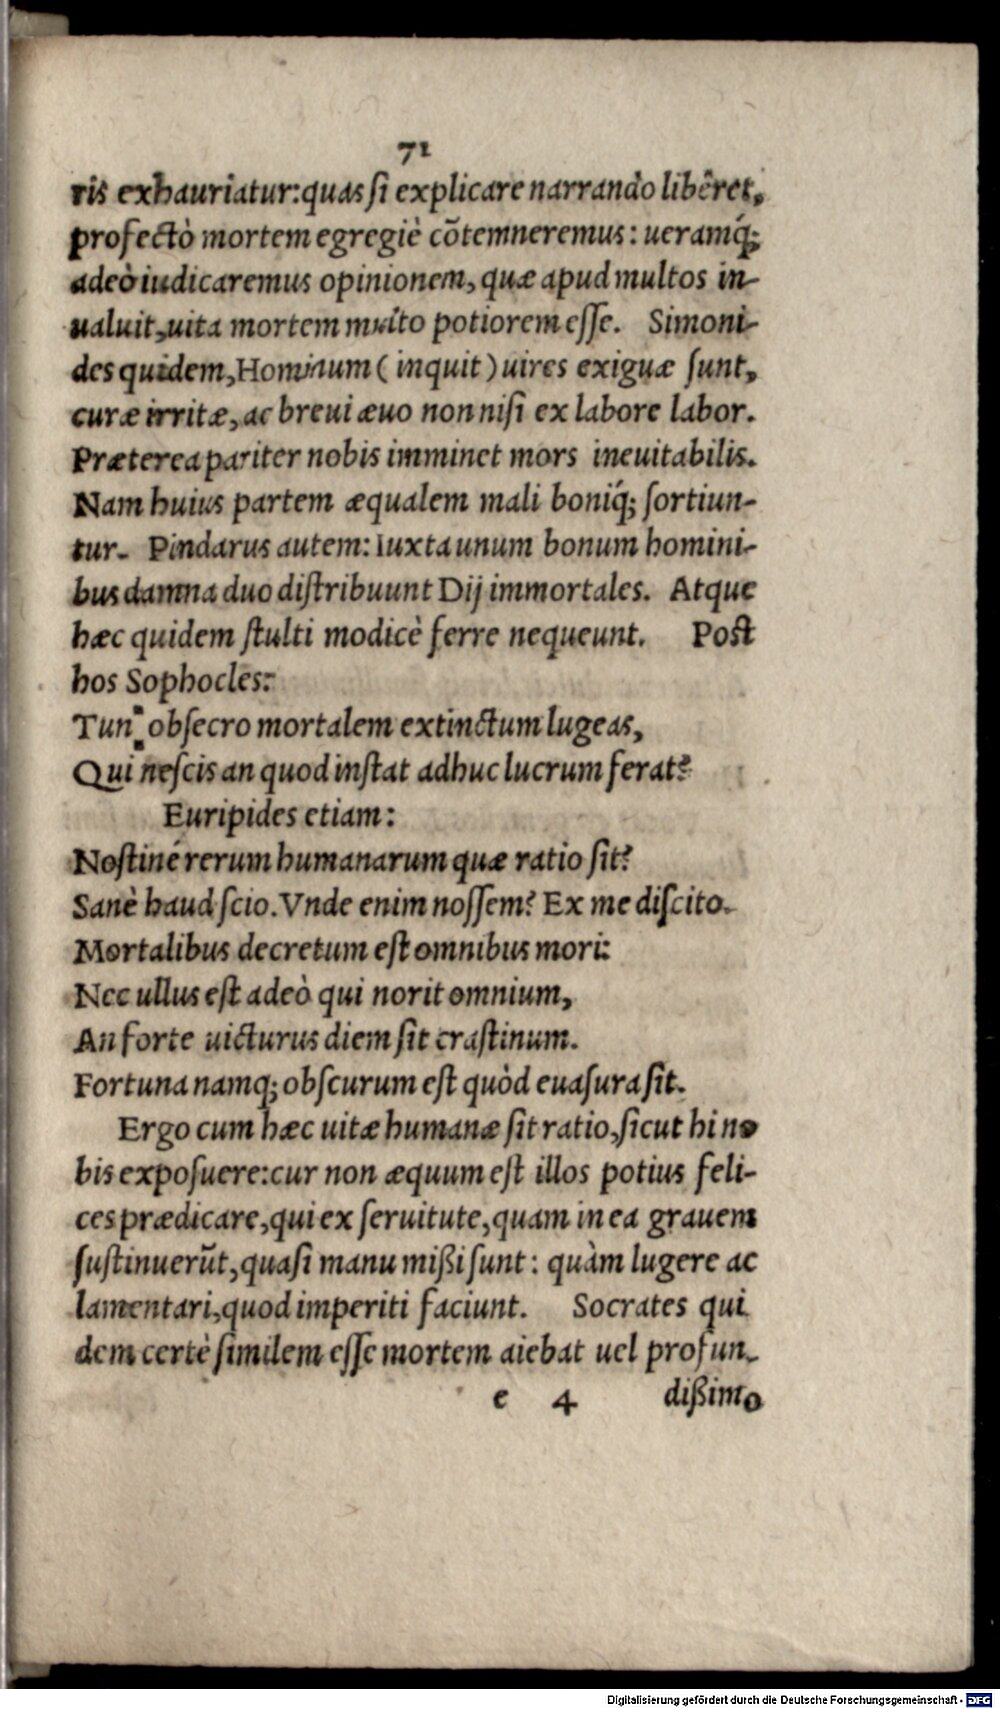 71
ris exhauriatur: quas si explicare narrando libêret,
profectò mortem egregiè cõtemneremus: ueramq́;
adeò iudicaremus opinionem, quæ apud multos in-
ualuit, uita mortem multo potiorem esse. Simoni-
des quidem, Hominum (inquit) uires exiguæ sunt,
curæ irritæ, ac breui æuo non nisi ex labore labor.
Præterea pariter nobis imminet mors ineuitabilis.
Nam huius partem æqualem mali boniq́; sortiun-
tur. Pindarus autem: Iuxta unum bonum homini-
bus damna duo distribuunt Dij immortales. Atque
hæc quidem stulti modicè ferre nequeunt. Post
hos Sophocles:
Tun' obsecro mortalem extinctum lugeas,
Qui nescis an quod instat adhuc lucrum ferat?
Euripides etiam:
Nostiné rerum humanarum quæ ratio sit?
Sanè haud scio. Vnde enim nossem? Ex me discito.
Mortalibus decretum est omnibus mori:
Nec ullus est adeò qui norit omnium,
An forte uicturus diem sit crastinum.
Fortuna namq; obscurum est quòd euasura sit.
Ergo cum hæc uitæ humanæ sit ratio, sicut hi no
bis exposuere: cur non æquum est illos potius feli-
ces prædicare, qui ex seruitute, quam in ea grauem
sustinuerũt, quasi manu mißi sunt: quàm lugere ac
lamentari, quod imperiti faciunt. Socrates qui
dem certè similem esse mortem aiebat uel profun-
e 4 dißimo
Digitalisierung gefördert durch die Deutsche Forschungsgemeinschaft - DFG